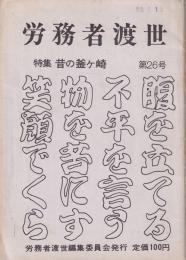 労務者渡世
特集 昔の釜ヶ崎 第26号
腹を立てる
不平を言う
物を苦にす
笑顔でくら
労務者渡世編集委員会発行 定価100円